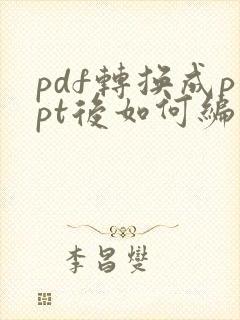 pdf轉換成p
pt後如何編
李昌燮